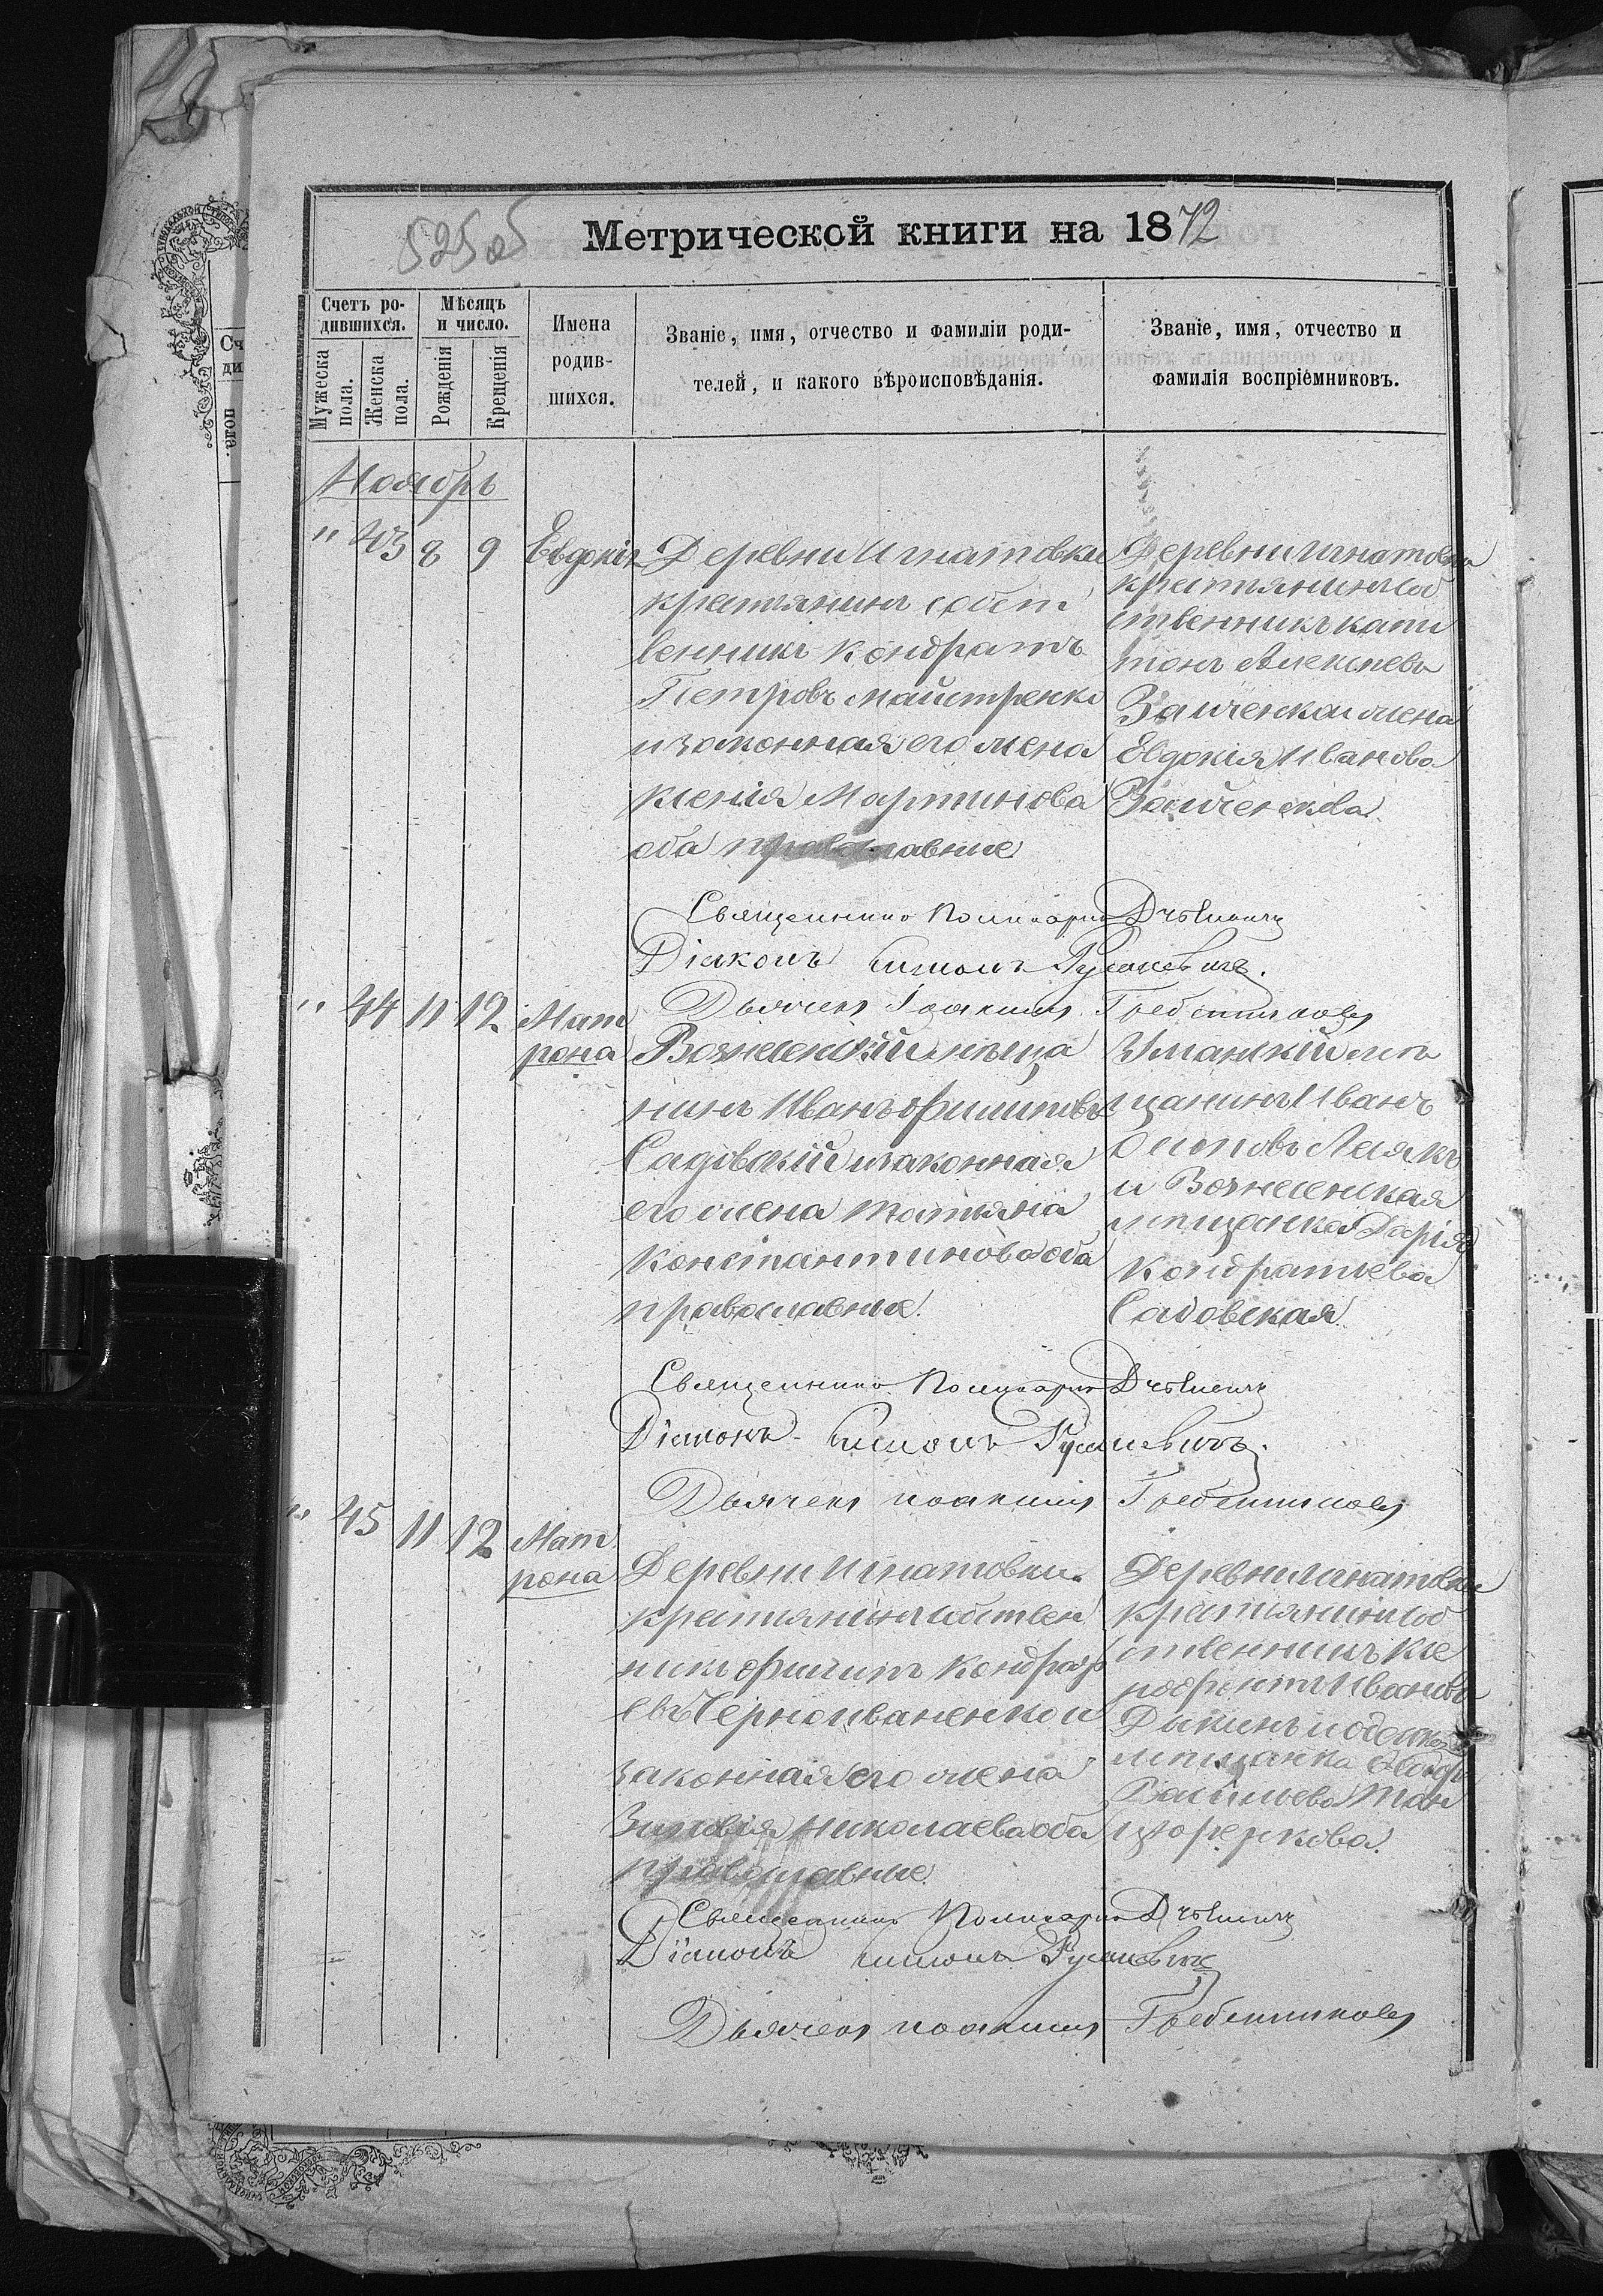 525 об
Метрической книги на 1872
Счетъ ро-
дившихся.
Мѣсяцъ
и число.
Мужеска
пола.
Женска
пола.
Рожденія
Крещенія
Имена
родив-
шихся.
Званіе, имя, отчество и фамиліи роди-
телей, и какого вѣроисповѣданія.
Званіе, имя, отчество и
фамилія воспріемниковъ.
Ноябрь
" 43 8 9 Евдокія
Деревни Игнатовки
крестьянинъ собст
венникъ Кондратъ
Петровъ Майстренко
и законная его жена
Ксенія Мартинова
оба православные
Деревни Игнатовки
крестьянинъ соб
ственникъ Капи
тонъ Алексѣевъ
Заиченко и жена
Евдокія Иванова
Заиченкова
Священникъ Поликарпъ
Діаконъ Симонъ Русаневичъ.
Дьячекъ Іоакимъ Гребенниковъ
" 44 11 12 Мат
рона
Вознесенскій мѣща
нинъ Иванъ Филиповъ
Садовскій и законная
его жена Татіяна
Константинова оба
православные
Уманскій мѣ
щанинъ Иванъ
Осиповъ
и Вознесенская
мѣщанка Дарія
Кондратьева
Садовская
Священникъ Поликарпъ
Діаконъ Симонъ Русаневичъ.
Дьячекъ Іоакимъ Гребенниковъ
" 45 11 12 Мат
рона
Деревни Игнатовки
крестьянинъ собствен
никъ Филипъ Кондрать
евъ Черноиваненко и
законная его жена
Зиновія Николаева оба
православные
Деревни Игнатовки
крестьянинъ соб
ственникъ Кс
Ивановъ
Дыкинъ и одесская
мѣщанка
Васильева Тан
цюреркова
Священникъ Поликарпъ
Діаконъ Симонъ Русаневичъ
Дьячекъ Іоакимъ Гребенниковъ